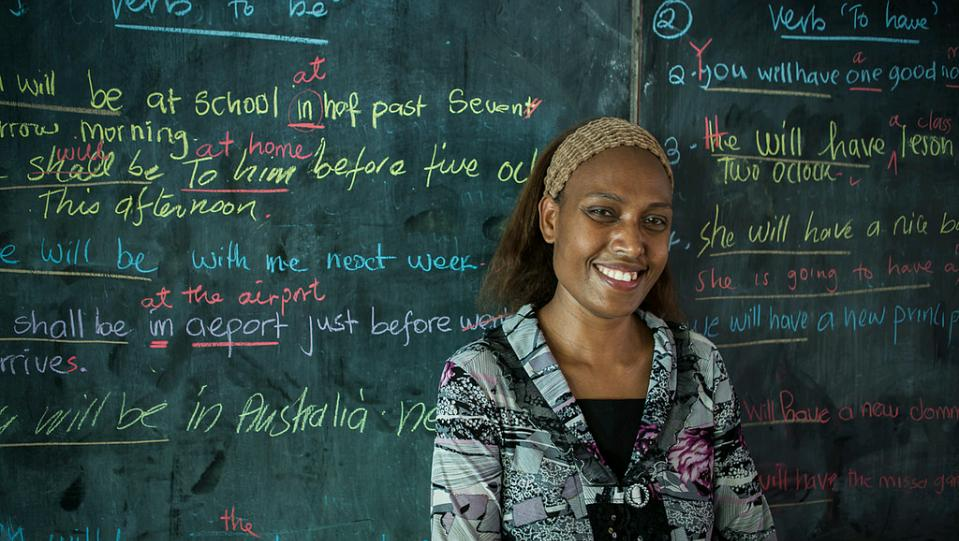 verb 'To be'
will be at school in haf past Seven
at
rrow morning.
shall be To him before five
will at home
This afternoon.
will be with me next week
at the airport
shall be in aeport just before
rrives.
will be in Australia.
the
②
Verb 'To have'
2. you will have one good
Y a
3. the will have leson
H a class
Two oclock.
she will have a nice
she is going to have a
we will have a new
will have a new
will have the